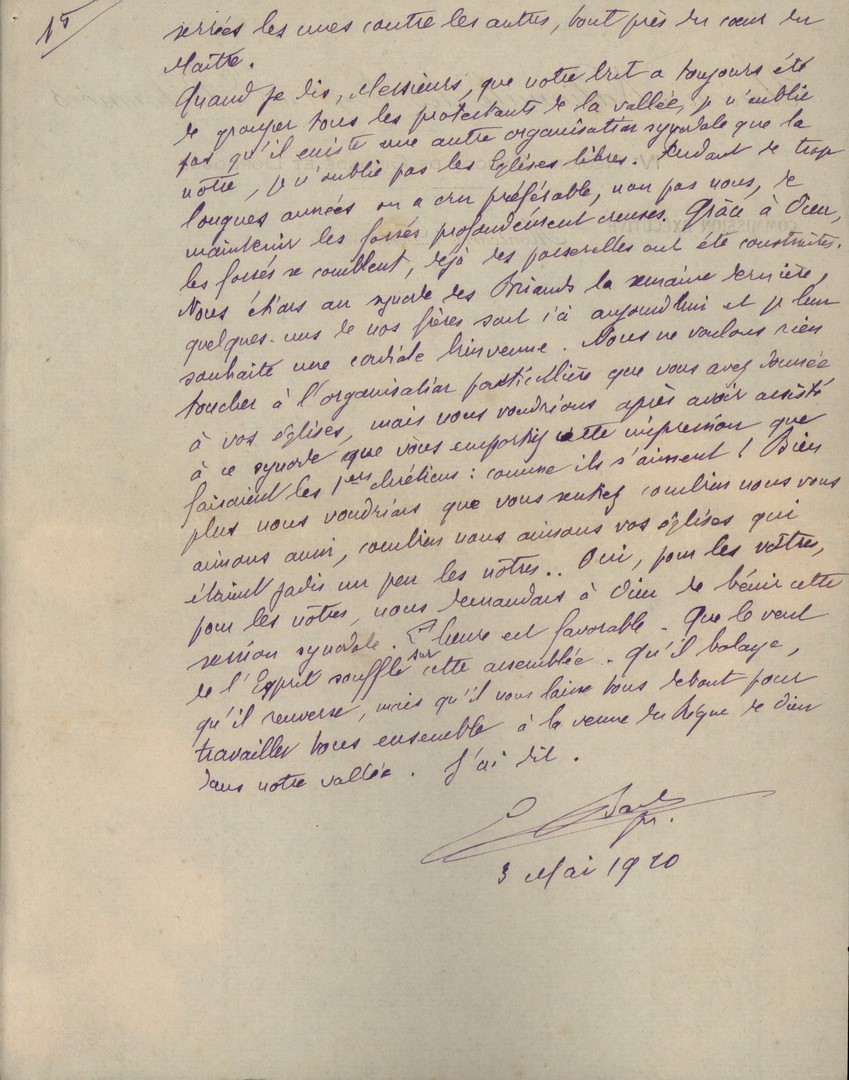 serrées les unes contre les autres, tout près du cœur du
Maître.
Quand je dis, Messieurs, que votre but a toujours été
de grouper tous les protestants de la vallée, je n'oublie
pas qu'il existe une autre organisation synodale que la
nôtre, je n'oublie pas les Eglises libres. Pendant de trop
longues années on a cru préférable, non pas nous, de
maintenir les fossés profondément creusés. Grâce à Dieu,
les fossés se comblent, déjà des passerelles ont été construites.
Nous étions au synode des Briands la semaine dernière,
quelques-uns de nos frères sont ici aujourd'hui et je leur
souhaite une cordiale bienvenue. Nous ne voulons rien
toucher à l'organisation particulière que vous avez donnée
à vos églises, mais nous voudrions après avoir assisté
à ce synode que vous emportiez cette impression que
faisaient les 1ers chrétiens : comme ils s'aiment ! Bien
plus nous voudrions que vous sentiez combien nous vous
aimons aussi, combien nous aimons vos églises qui
étaient jadis un peu les nôtres.. Oui, pour les vôtres,
pour les nôtres, nous demandons à Dieu de bénir cette
session synodale. L'heure est favorable. Que le vent
de l'Esprit souffle sur cette assemblée. Qu'il balaye,
qu'il renverse, mais qu'il nous laisse tous debout pour
travailler tous ensemble à la venue du Règne de Dieu
dans notre vallée. J'ai dit.
3 Mai 1920
COMMISSION EXECUTIVE